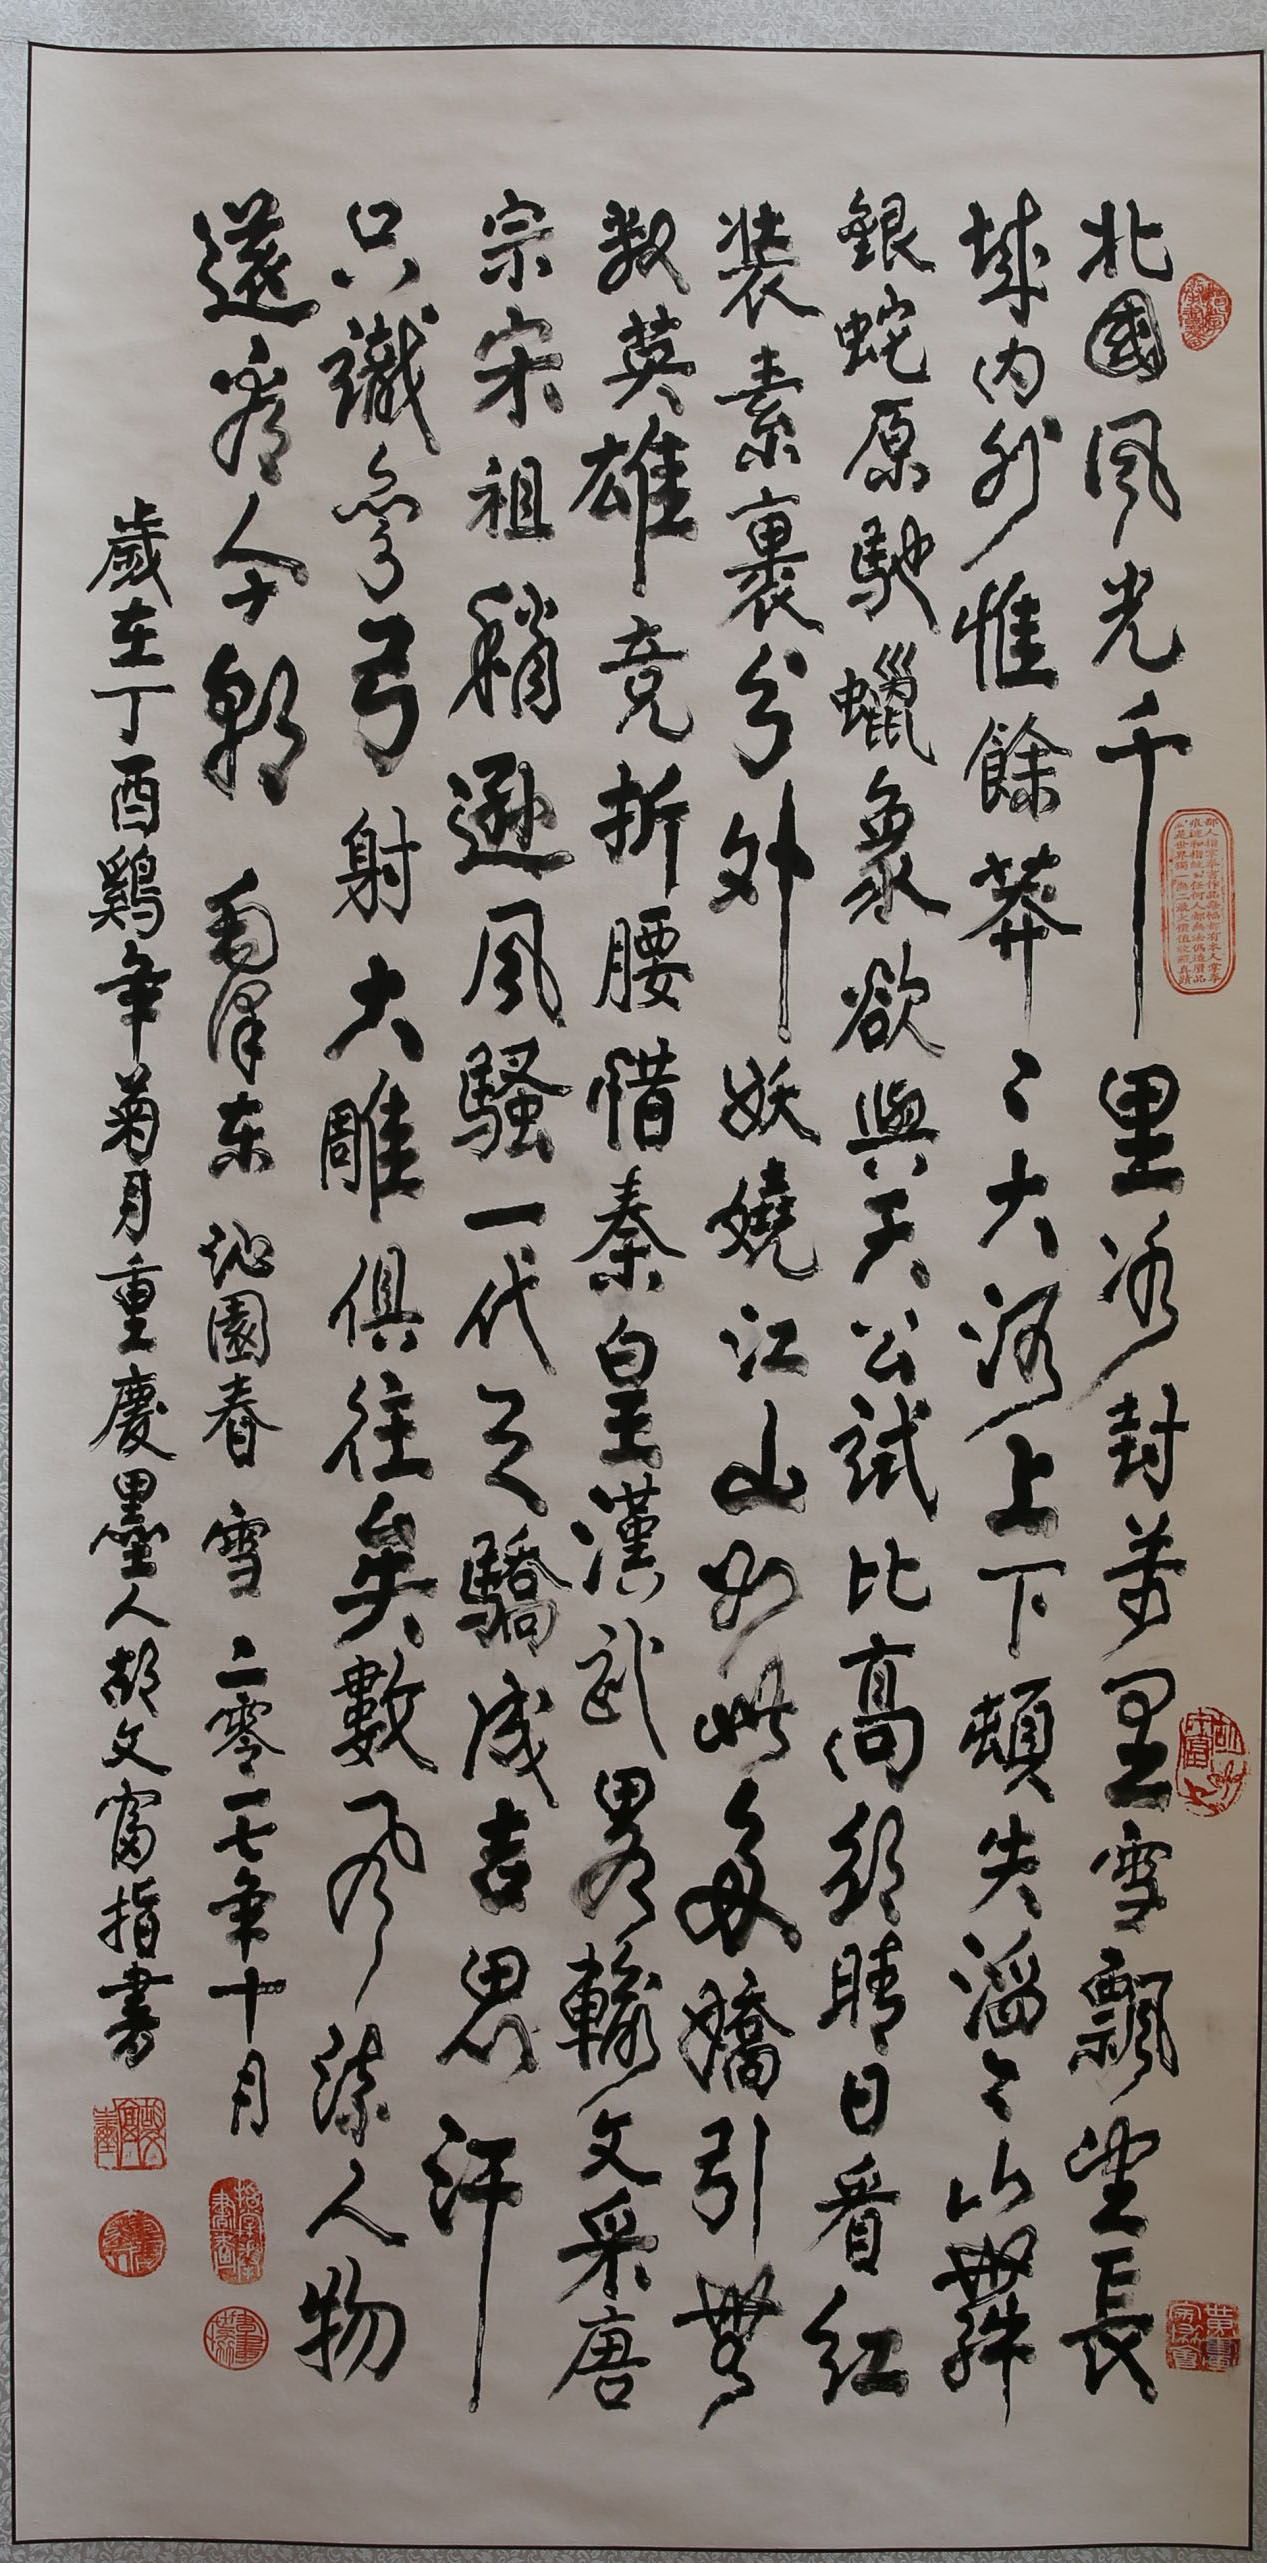 北國風光千里冰封萬里雪飄望長
城內外惟餘莽〻大河上下頓失滔〻山舞
銀蛇原馳蠟象欲與天公試比高須晴日看紅
裝素裹分外妖嬈江山如此多嬌引無
数英雄竞折腰惜秦皇漢武畧輸文采唐
宗宋祖稍遜風騷一代天驕成吉思汗
只識彎弓射大雕俱往矣數風流人物
還看今朝 毛澤东 沁園春 雪 二零一七年十月
歲在丁酉鷄年菊月重慶墨人胡文富指書